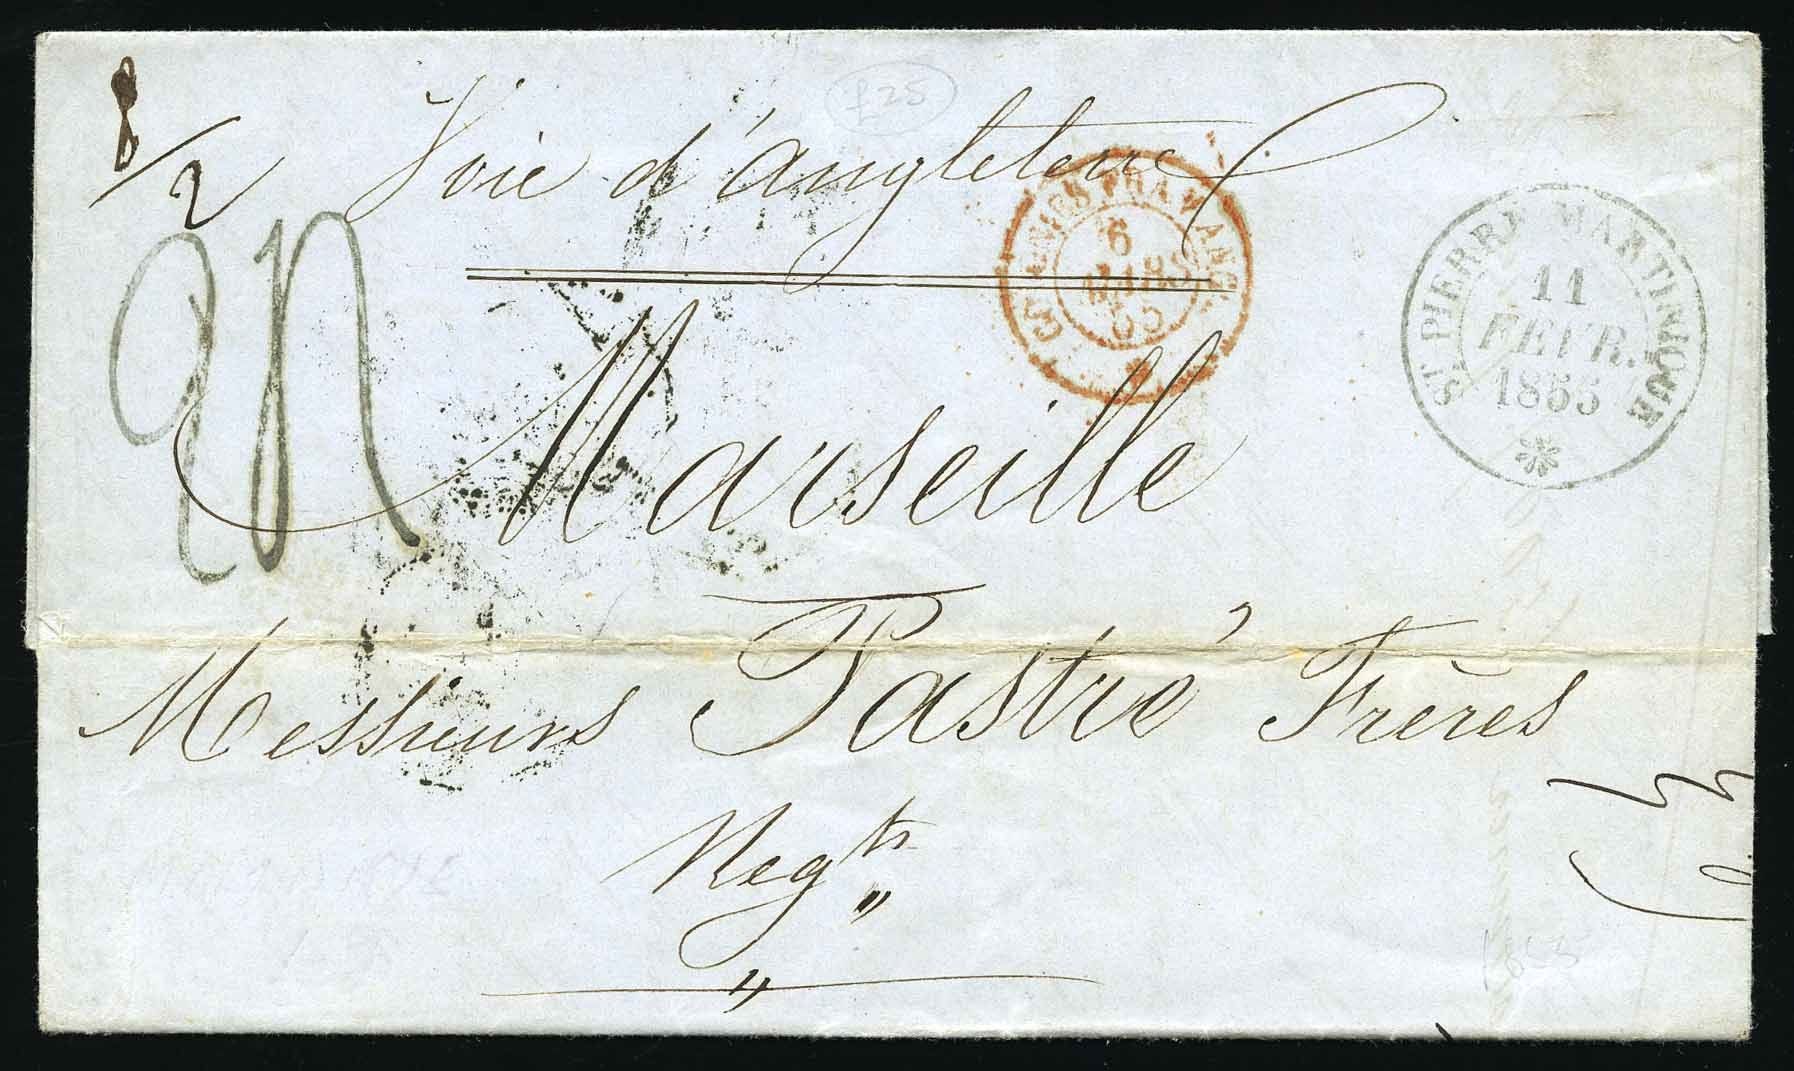 £28
8/2 Voie d'angleterre
COLONIES FRA V ANGL.
6
MARS
55
ST PIERRE MARTINIQUE
11
FEVR.
1855
Marseille
Messieurs Pastré Frères
Negts
1855